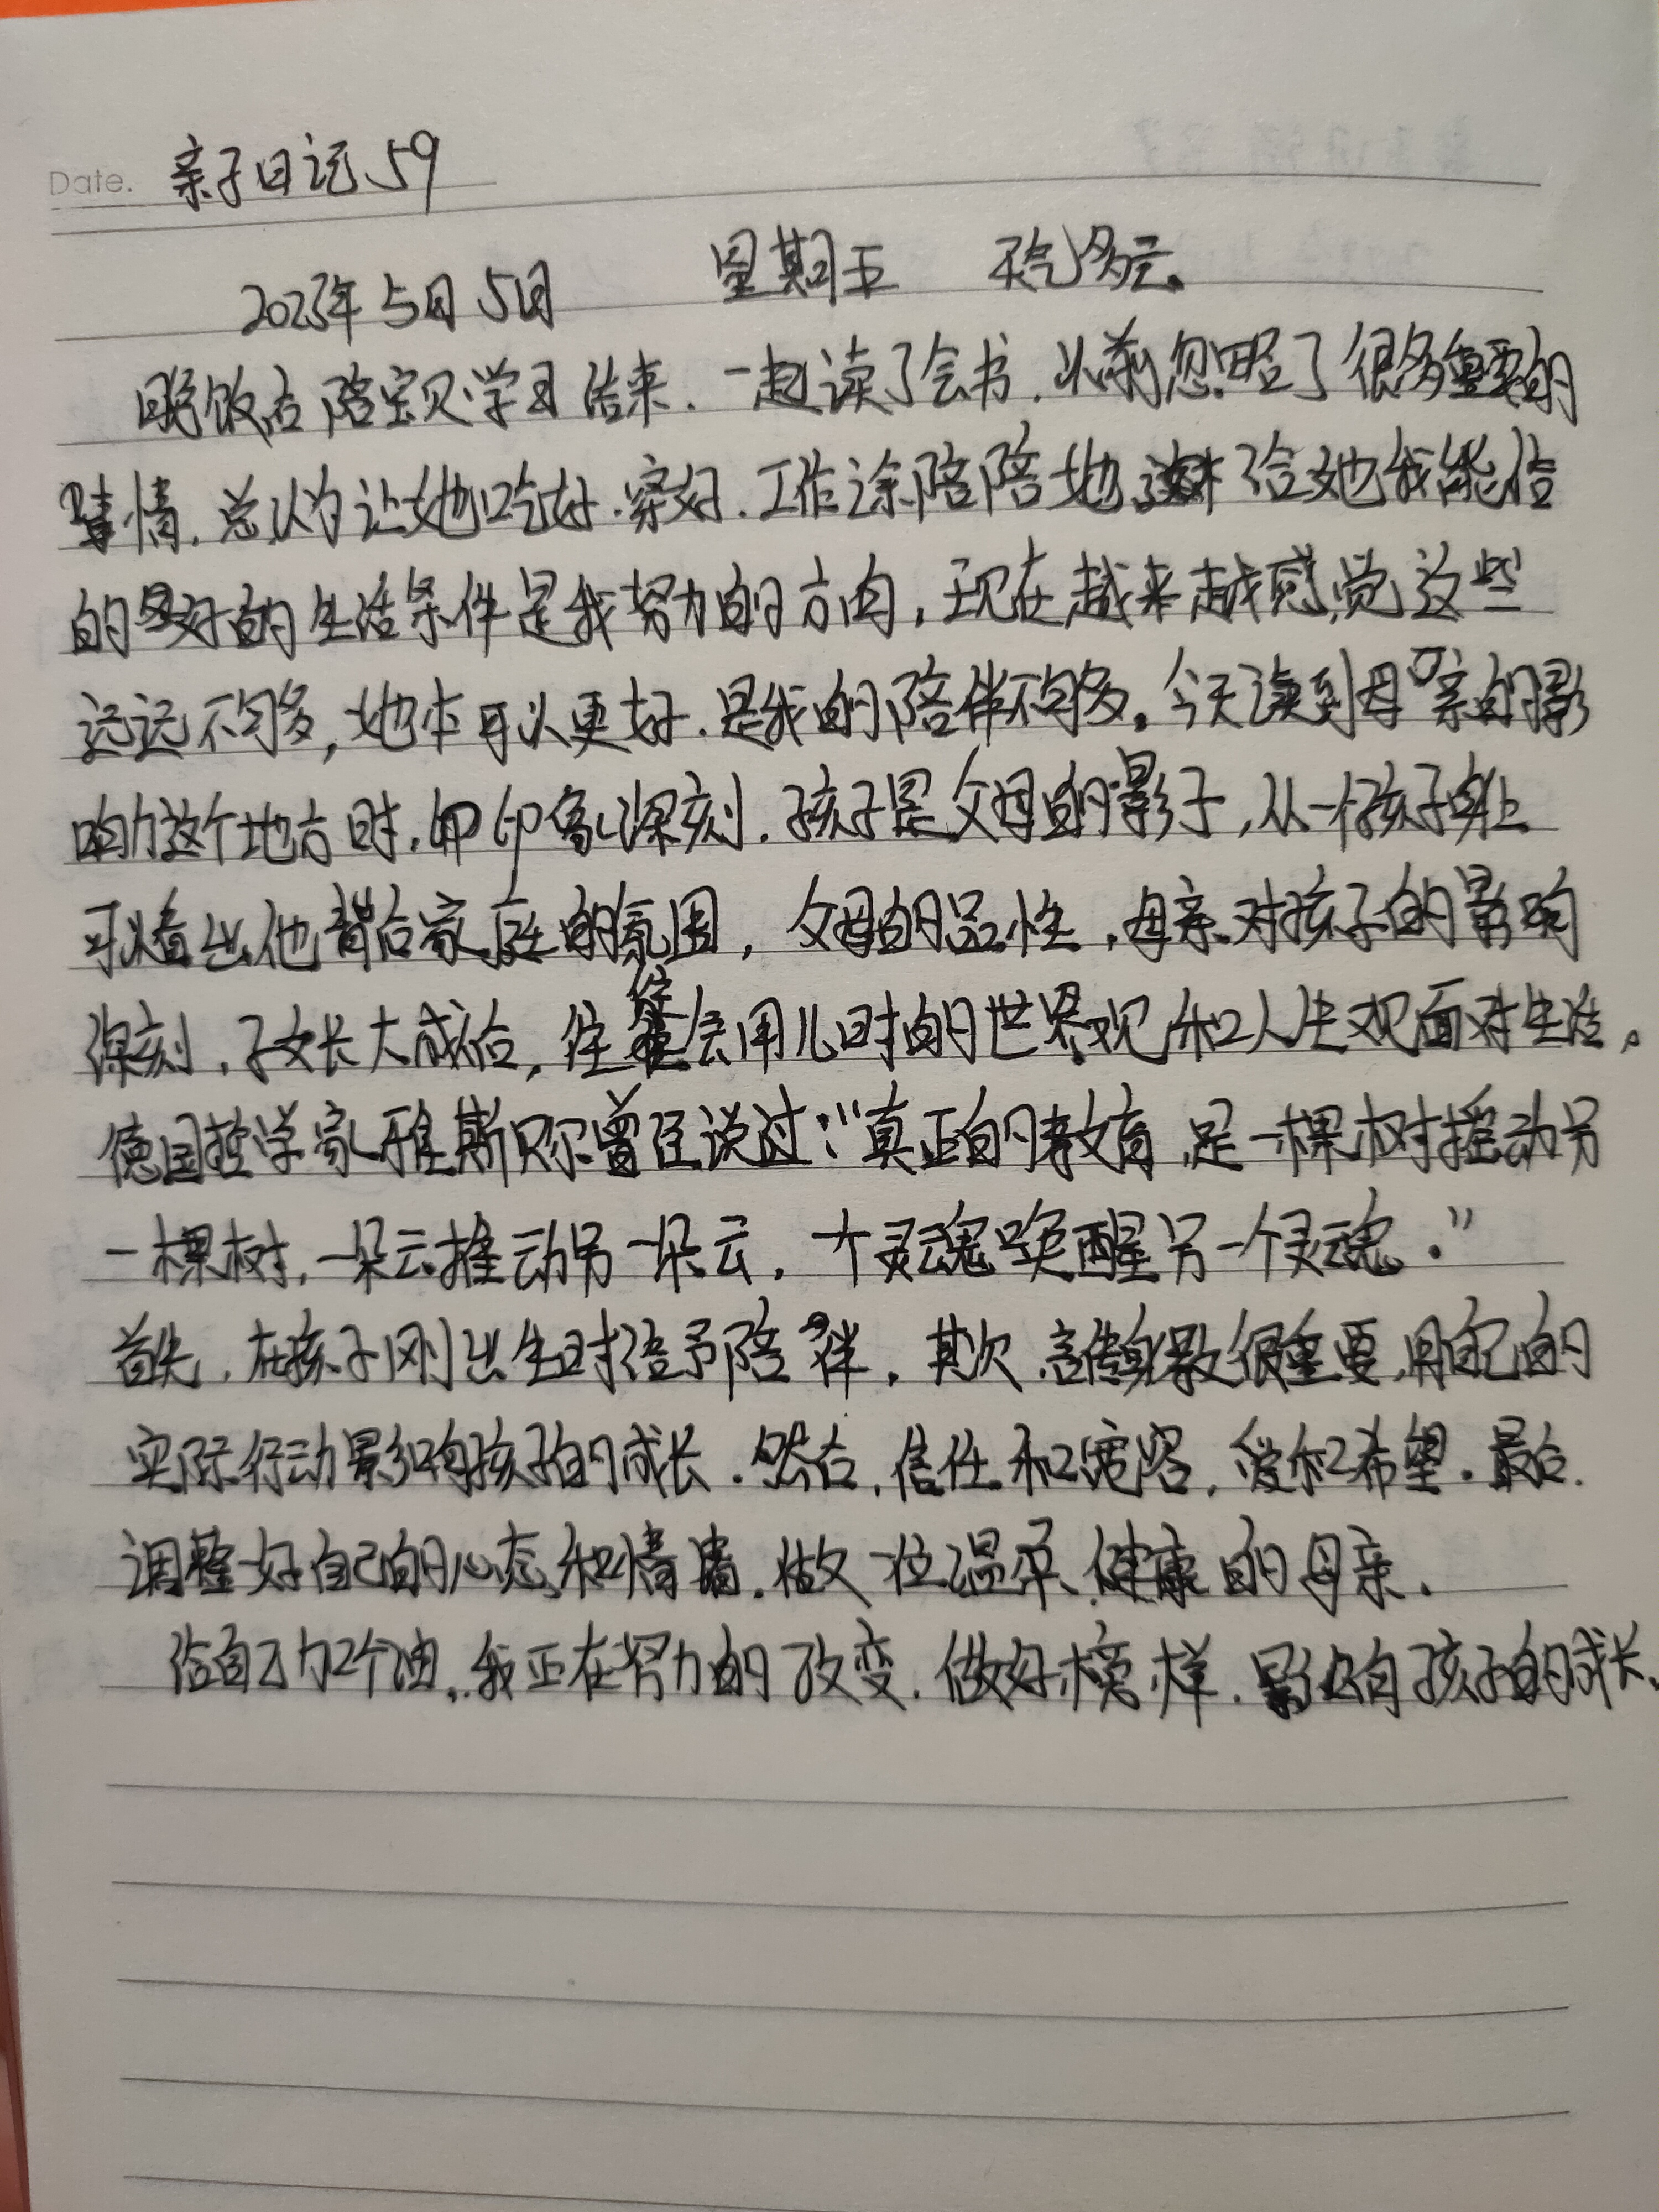 Date. 亲子日记59
2023年5月5日 星期五 天气多云.
晚饭后陪宝贝学习结束.一起读了会书.从前忽略了很多重要的
事情.总认为让她吃好.穿好.工作之余陪陪她,给她我能给
的最好的生活条件是我努力的方向,现在越来越感觉这些
远远不够,她本可以更好.是我的陪伴不够多。今天读到母亲的影
响力这个地方时,印象深刻.孩子是父母的影子,从一个孩子身上
可以看出他背后家庭的氛围,父母的品性,母亲对孩子的影响
深刻,子女长大成后,往往会用儿时的世界观和人生观面对生活。
德国哲学家雅斯贝尔曾经说过:"真正的教育,是一棵树摇动另
一棵树,一朵云推动另一朵云,一个灵魂唤醒另一个灵魂."
首先,在孩子刚出生时给予陪伴.其次,言传身教很重要,用自己的
实际行动影响孩子的成长.然后,信任和宽容,爱和希望.最后.
调整好自己的心态和情绪.做一位温柔、健康的母亲.
给自己加个油,我正在努力的改变.做好榜样.影响孩子的成长.